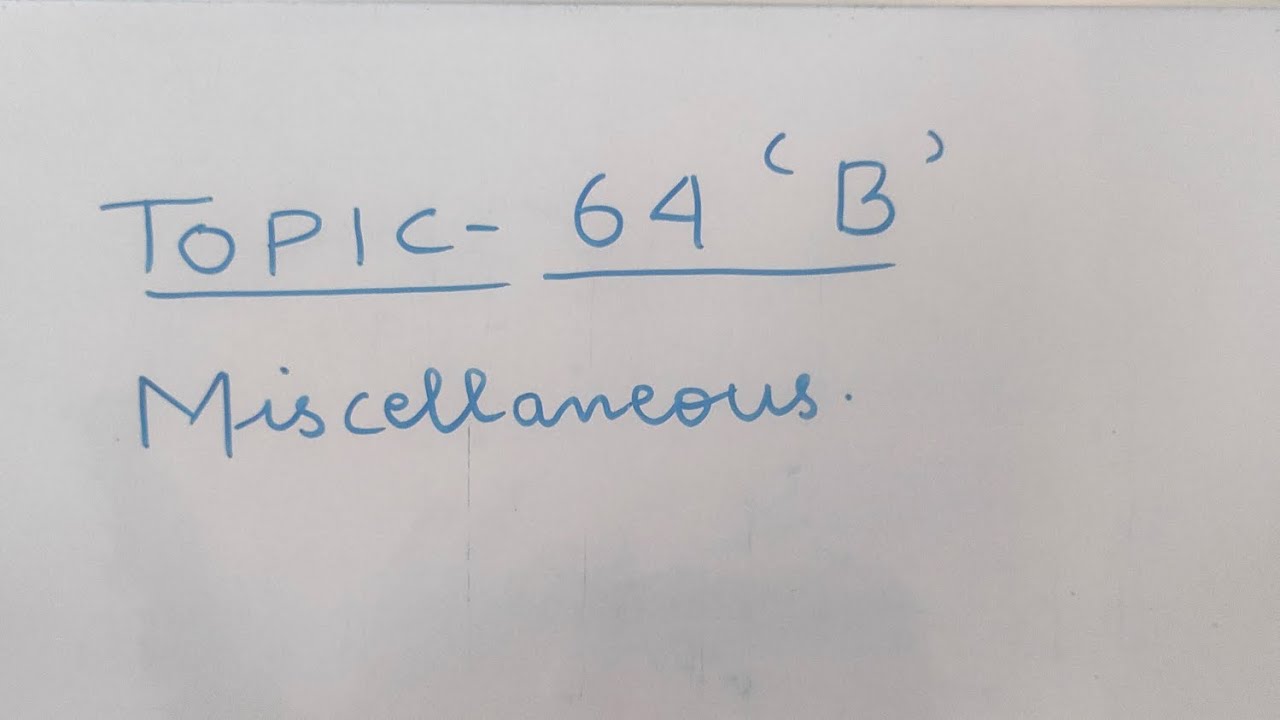 TOPIC- 64 ‘B’
Miscellaneous.